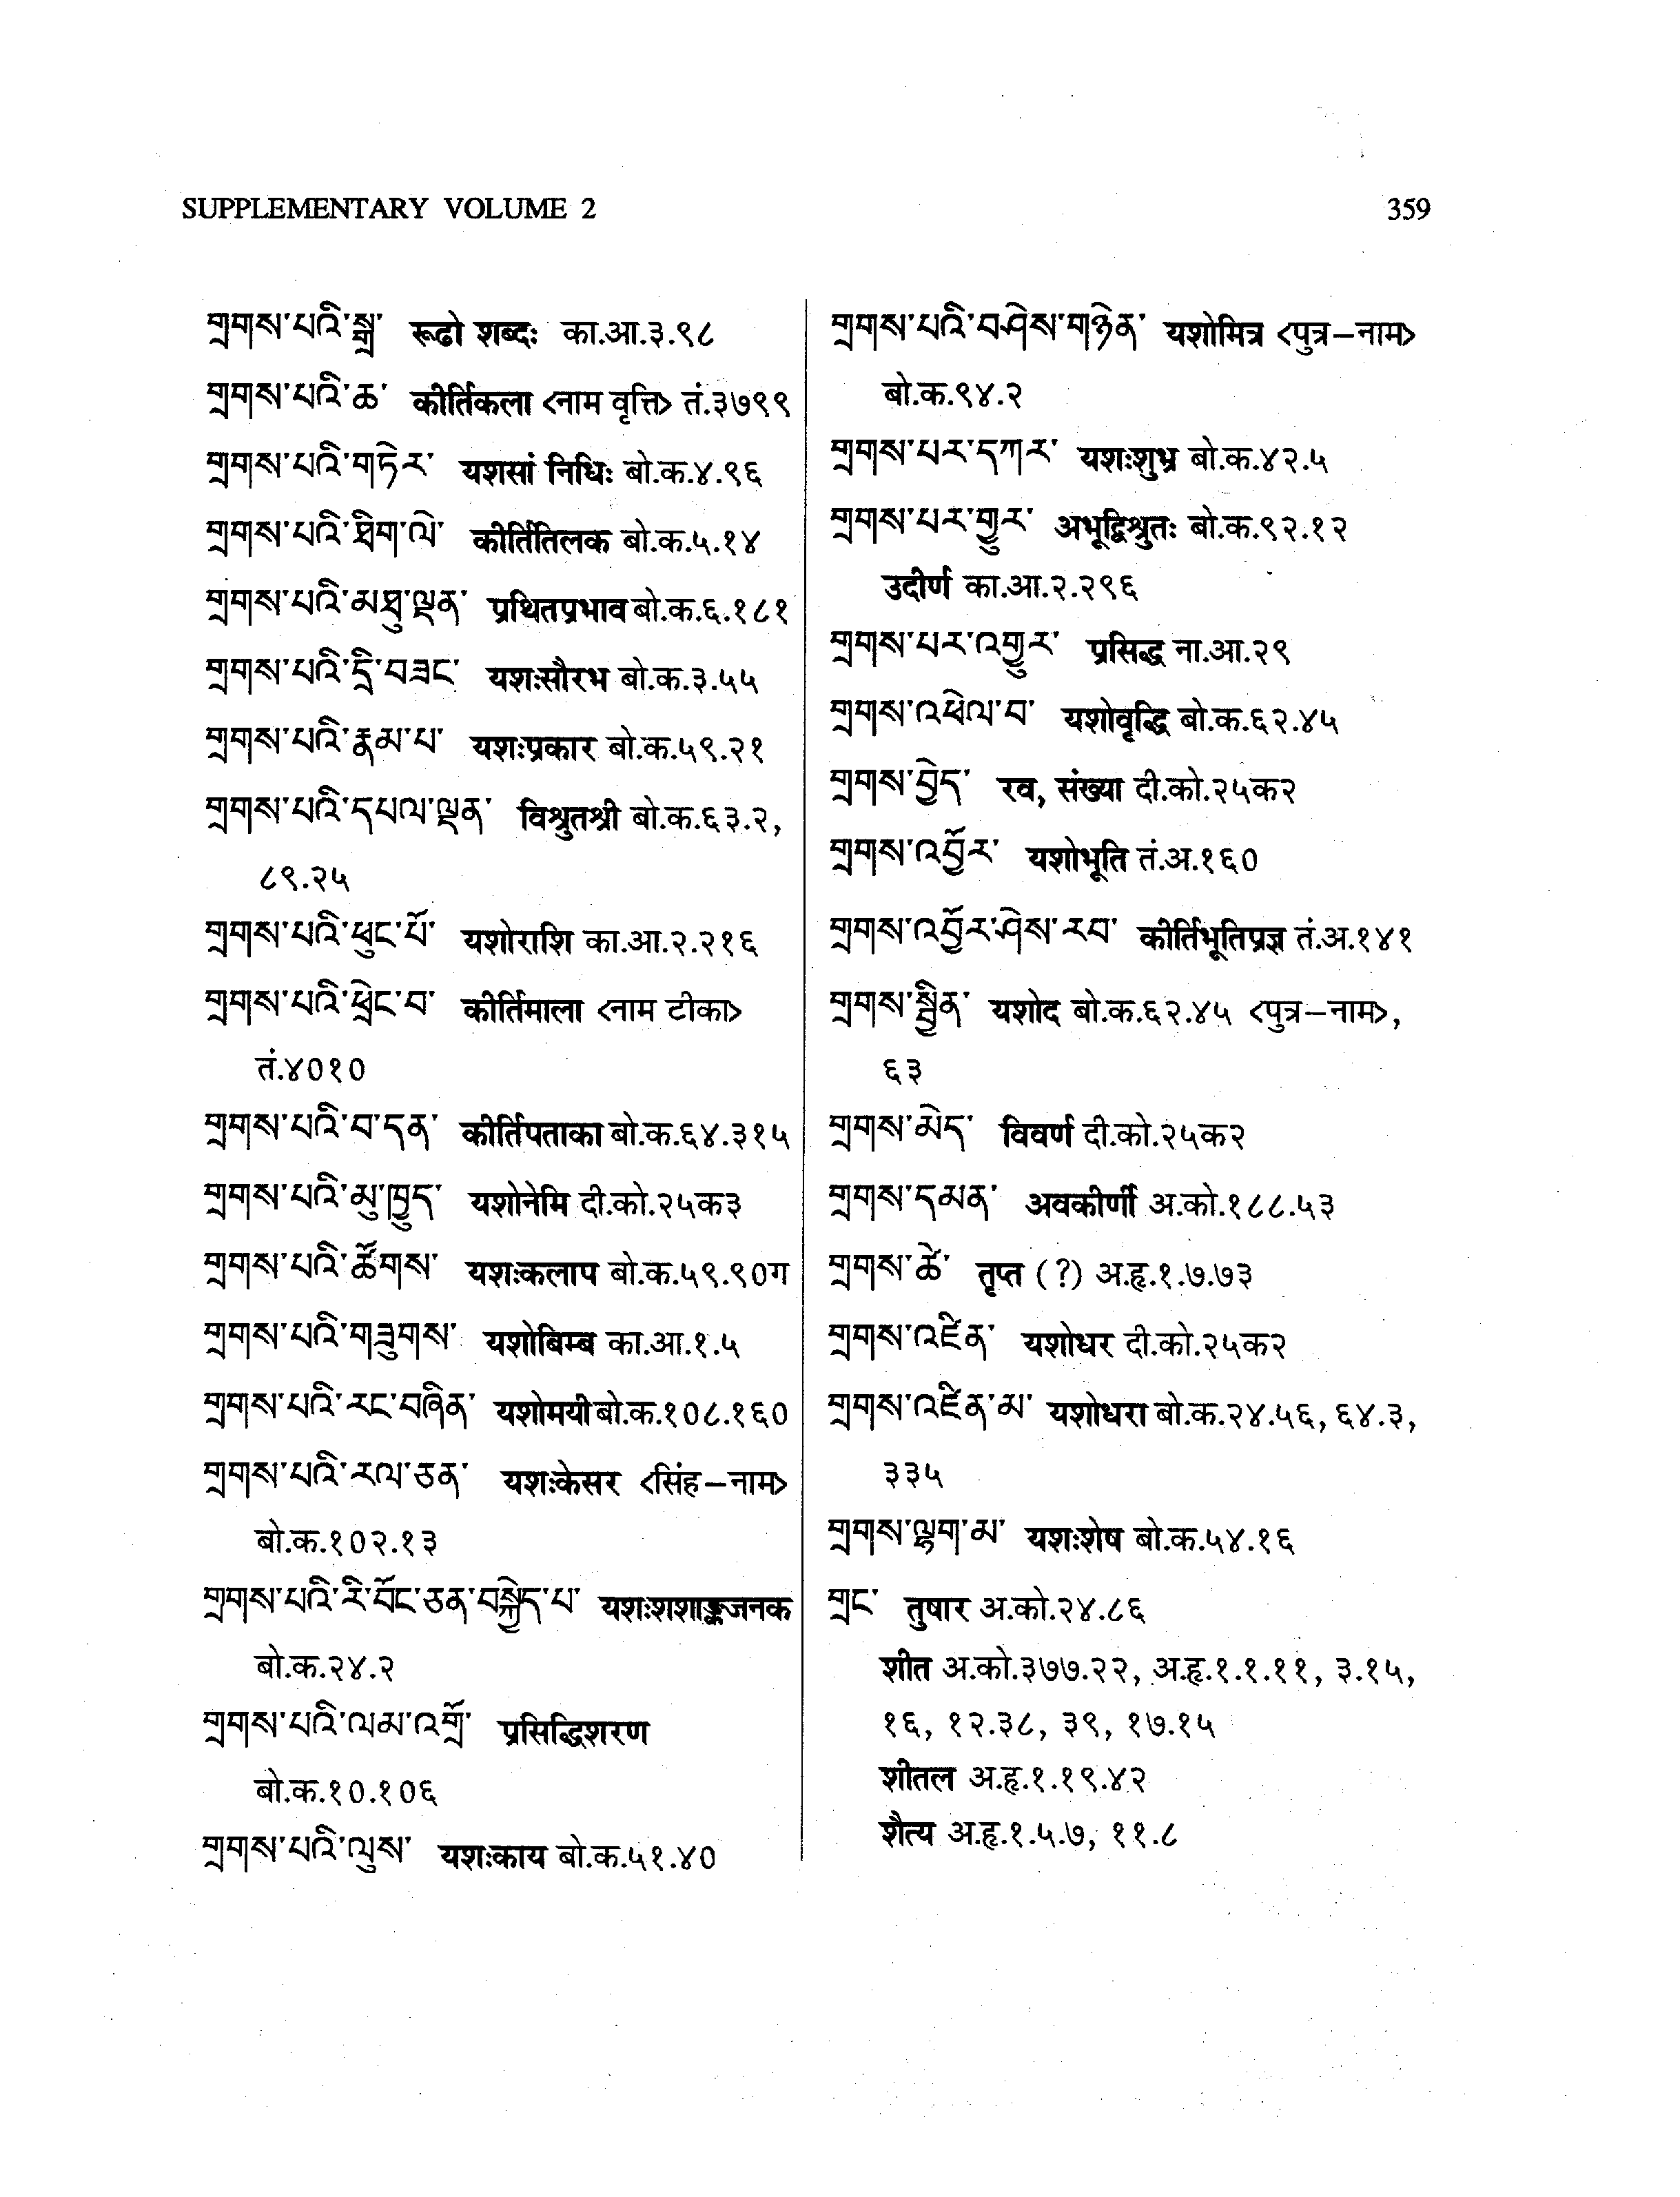 SUPPLEMENTARY VOLUME 2 359
གྲགས་པའི་སྒྲ་ रूढो शब्दः का.आ.३.९८
གྲགས་པའི་ཆ་ कीर्तिकला <नाम वृत्ति> तं.३७९९
གྲགས་པའི་གཏེར་ यशसां निधिः बो.क.४.९६
གྲགས་པའི་ཐིག་ལེ་ कीर्तितिलक बो.क.५.१४
གྲགས་པའི་མཐུ་ལྡན་ प्रथितप्रभाव बो.क.६.१८१
གྲགས་པའི་དྲི་བཟང་ यशःसौरभ बो.क.३.५५
གྲགས་པའི་རྣམ་པ་ यशःप्रकार बो.क.५९.२१
གྲགས་པའི་དཔལ་ལྡན་ विश्रुतश्री बो.क.६३.२,
८९.२५
གྲགས་པའི་ཕུང་པོ་ यशोराशि का.आ.२.२१६
གྲགས་པའི་ཕྲེང་བ་ कीर्तिमाला <नाम टीका>
तं.४०१०
གྲགས་པའི་བ་དན་ कीर्तिपताका बो.क.६४.३१५
གྲགས་པའི་མུ་ཁྱུད་ यशोनेमि दी.को.२५क३
གྲགས་པའི་ཚོགས་ यशःकलाप बो.क.५९.९०ग
གྲགས་པའི་གཟུགས་ यशोबिम्ब का.आ.१.५
གྲགས་པའི་རང་བཞིན་ यशोमयी बो.क.१०८.१६०
གྲགས་པའི་རལ་ཅན་ यशःकेसर <सिंह-नाम>
बो.क.१०२.१३
གྲགས་པའི་རི་བོང་ཅན་བསྐྱེད་པ་ यशःशशाङ्कजनक
बो.क.२४.२
གྲགས་པའི་ལམ་འགྲོ་ प्रसिद्धिशरण
बो.क.१०.१०६
གྲགས་པའི་ལུས་ यशःकाय बो.क.५१.४०
གྲགས་པའི་བཤེས་གཉེན་ यशोमित्र <पुत्र-नाम>
बो.क.९४.२
གྲགས་པར་དཀར་ यशःशुभ्र बो.क.४२.५
གྲགས་པར་གྱུར་ अभूद्विश्रुतः बो.क.९२.१२
उदीर्ण का.आ.२.२९६
གྲགས་པར་འགྱུར་ प्रसिद्ध ना.आ.२९
གྲགས་འཕེལ་བ་ यशोवृद्धि बो.क.६२.४५
གྲགས་བྱེད་ रव, संख्या दी.को.२५क२
གྲགས་འབྱོར་ यशोभूति तं.अ.१६०
གྲགས་འབྱོར་ཤེས་རབ་ कीर्तिभूतिप्रज्ञ तं.अ.१४१
གྲགས་སྦྱིན་ यशोद बो.क.६२.४५ <पुत्र-नाम>,
६३
གྲགས་མེད་ विवर्ण दी.को.२५क२
གྲགས་དམན་ अवकीर्णी अ.को.१८८.५३
གྲགས་ཚེ་ तृप्त (?) अ.हृ.१.७.७३
གྲགས་འཛིན་ यशोधर दी.को.२५क२
གྲགས་འཛིན་མ་ यशोधरा बो.क.२४.५६, ६४.३,
३३५
གྲགས་ལྷག་མ་ यशःशेष बो.क.५४.१६
གྲང་ तुषार अ.को.२४.८६
शीत अ.को.३७७.२२, अ.हृ.१.१.११, ३.१५,
१६, १२.३८, ३९, १७.१५
शीतल अ.हृ.१.१९.४२
शैत्य अ.हृ.१.५.७, ११.८